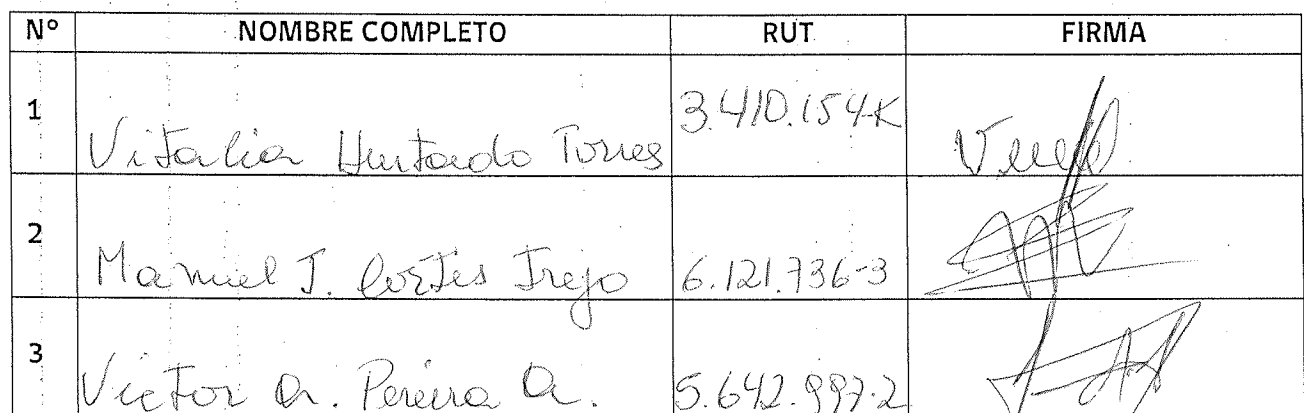 Nº NOMBRE COMPLETO RUT FIRMA
1 Vitalia Hurtado Torres 3.410.154-K
2 Manuel J. Cortes Trejo 6.121.736-3
3 Victor A. Pereira A. 5.642.997-2